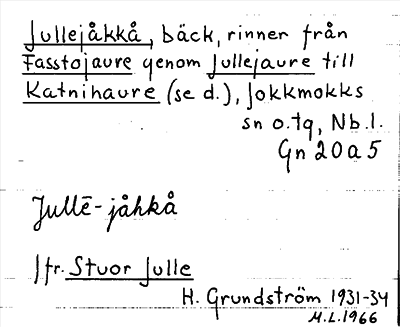 Jullejåkkå, bäck, rinner från
Fasstojaure genom Jullejaure till
Katnihaure (se d.), Jokkmokks
sn o. tq, Nb.l.
Gn 20a5
Jullē-jåhkå
Jfr. Stuor Julle
H. Grundström 1931-34
M.L. 1966